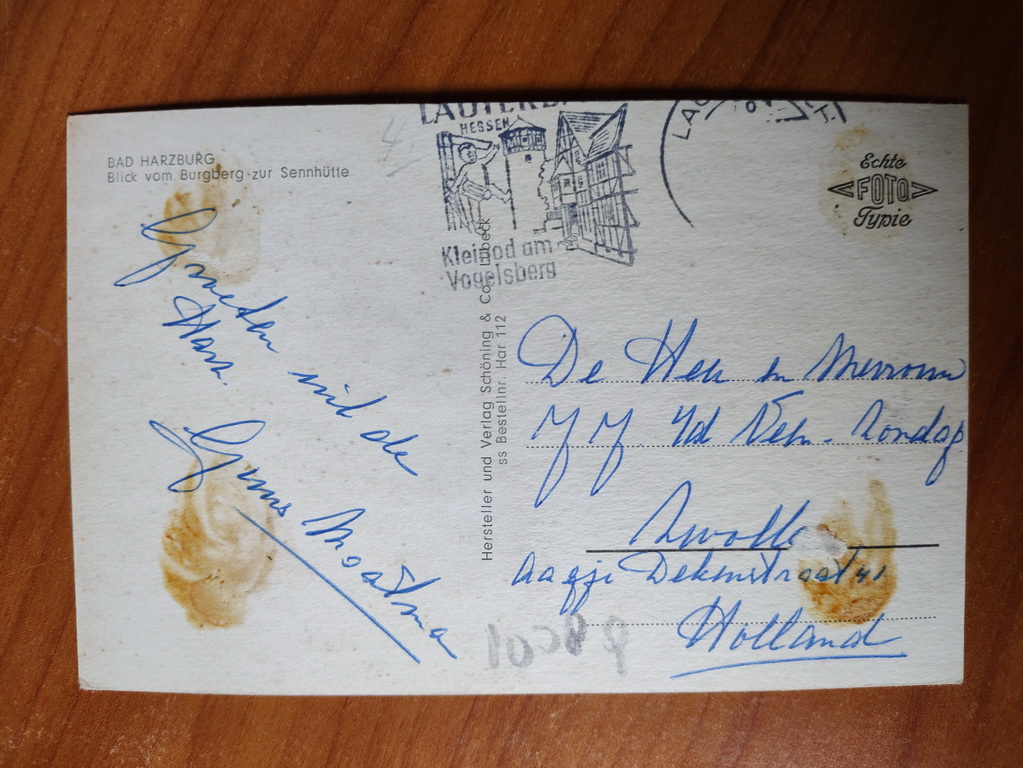 BAD HARZBURG
Blick vom Burgberg zur Sennhütte
HESSEN
Kleinod am
Vogelsberg
Echte
FOTO
Typie
Groeten uit de
Harz.
Moatsma
Hersteller und Verlag Schöning & Co., Lübeck
ss Bestellnr. Har 112
De Heer en Mevrouw
Zwolle
Aagje Dekenstraat 41
Holland